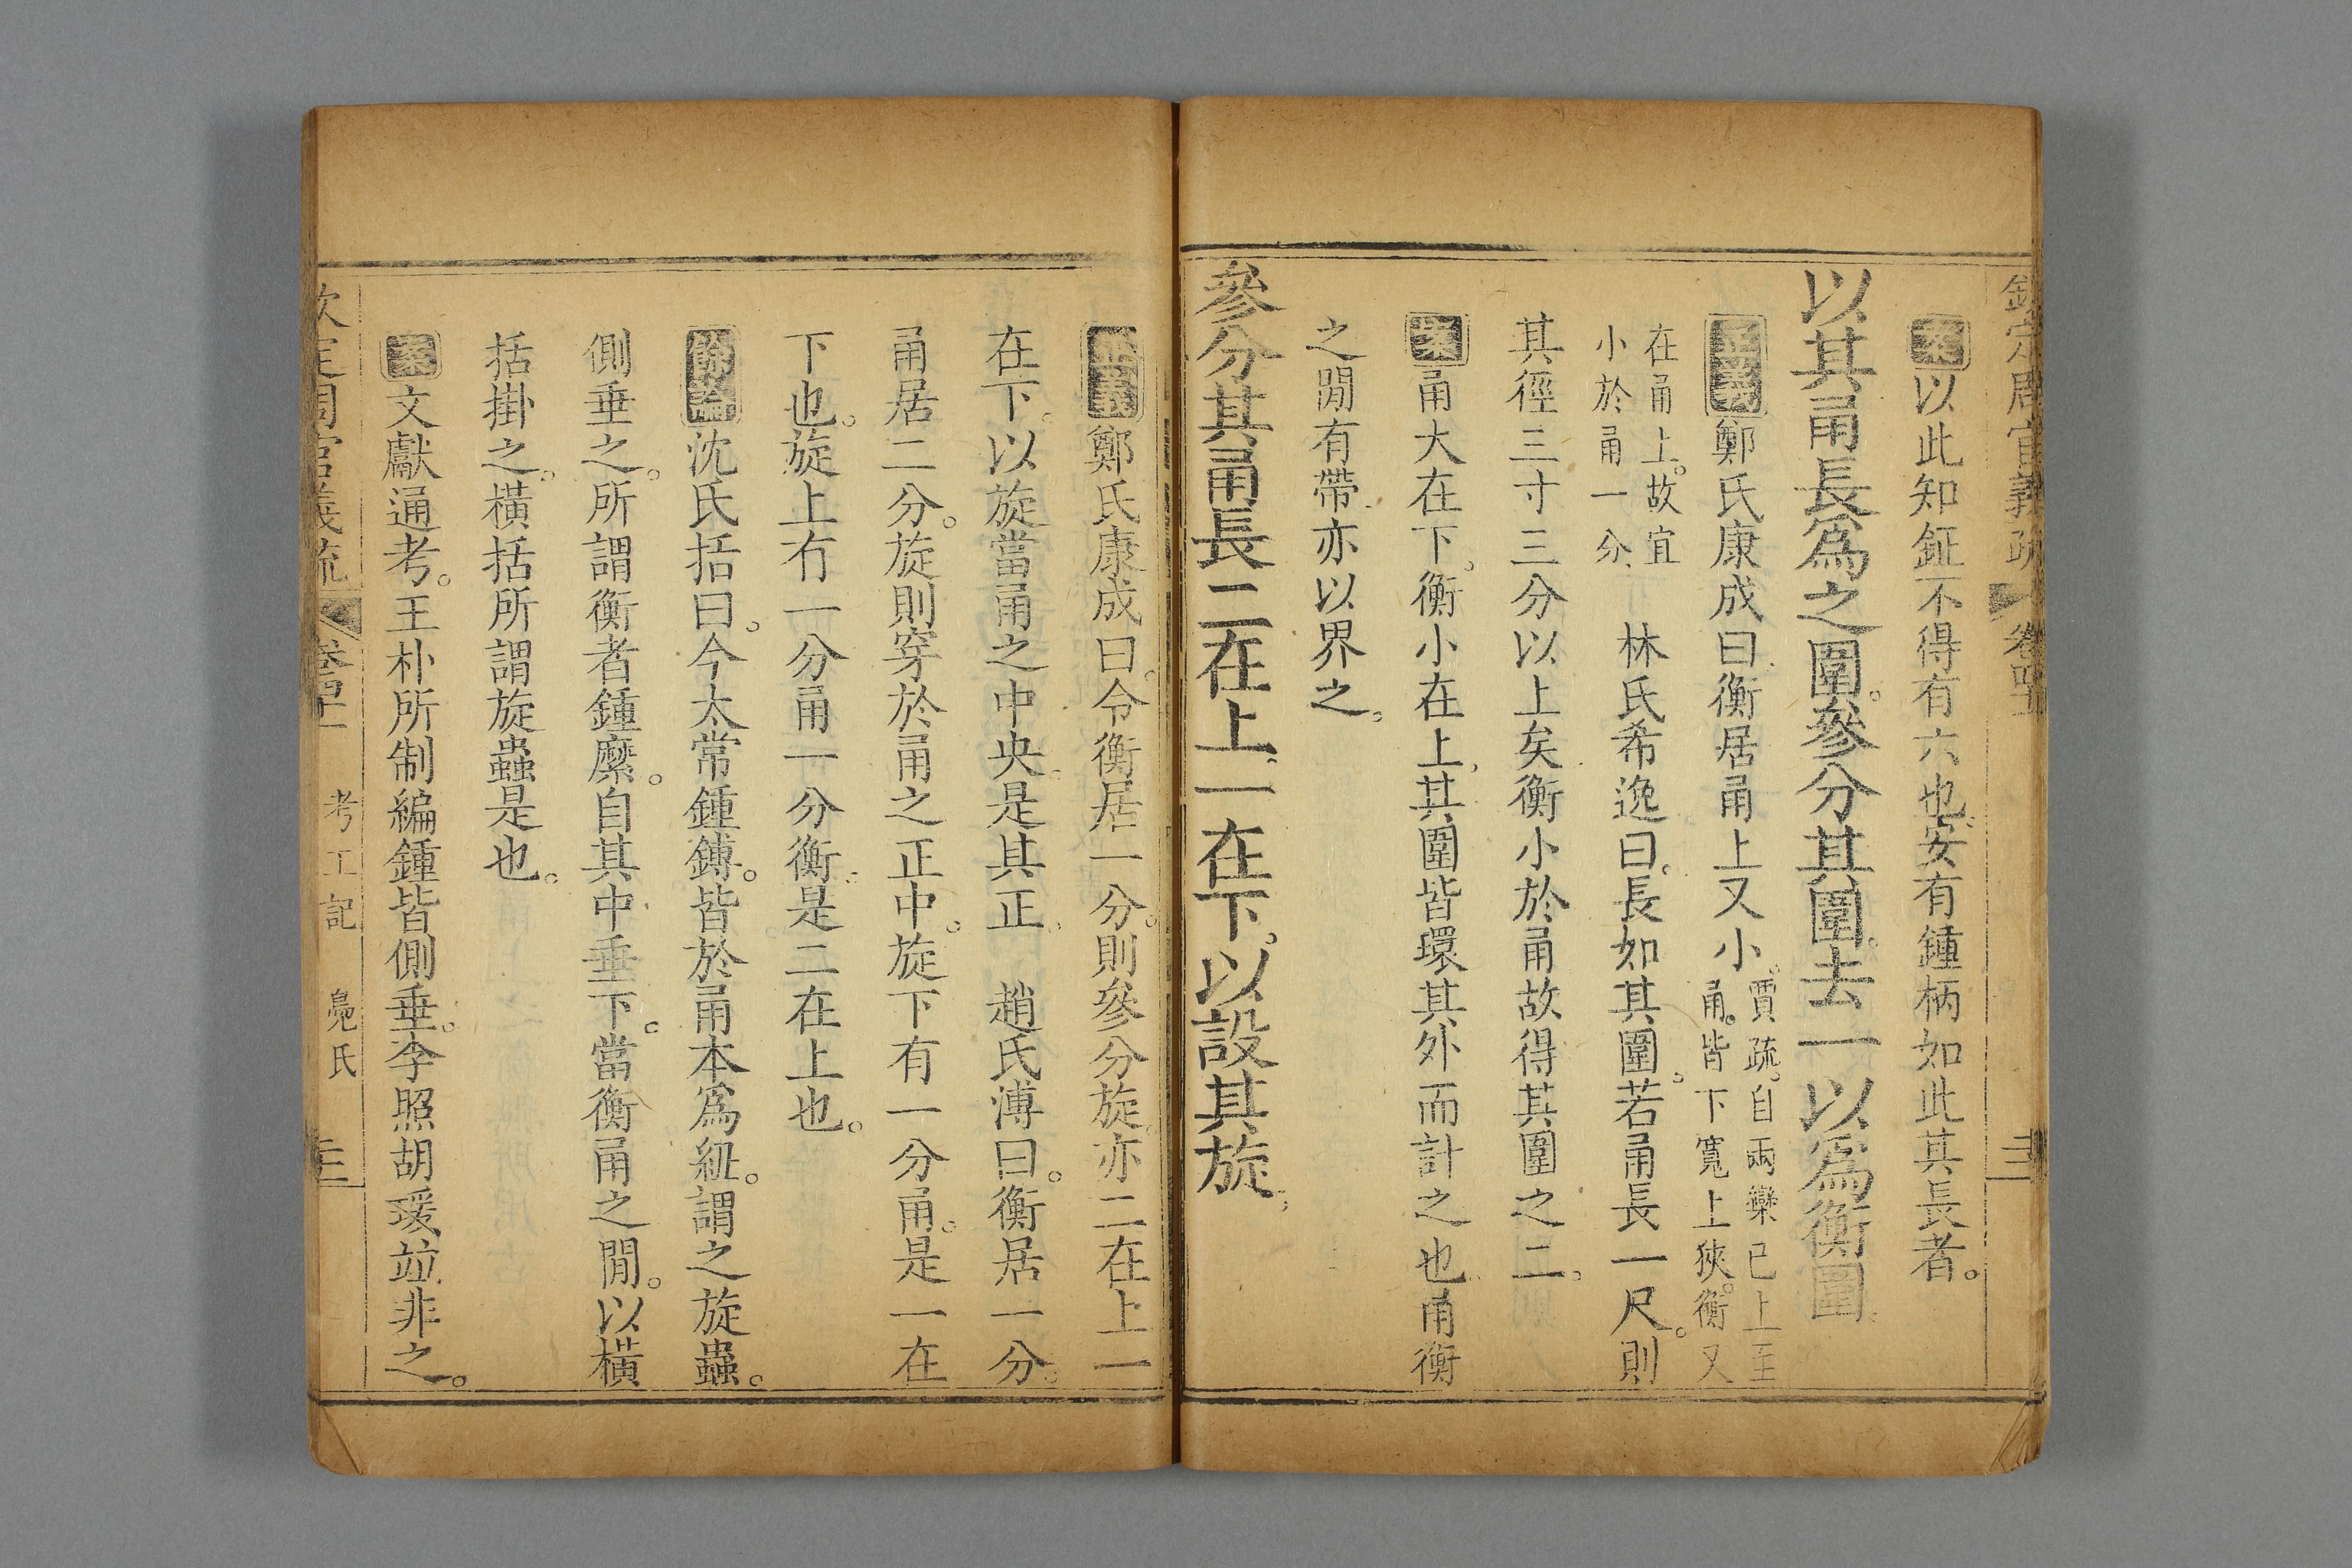 欽定周官義疏 卷四十
案以此知鉦不得有六也安有鍾柄如此其長者。
以其甬長爲之圍。參分其圍。去一以爲衡圍。
正義鄭氏康成曰衡居甬上又小。賈疏。自兩欒已上至甬。皆下寬上狹。衡又
在甬上。故宜小於甬一分 林氏希逸曰。長如其圍。若甬長一尺。則
其徑三寸三分以上矣衡小於甬故得其圍之二。
案甬大在下。衡小在上。其圍皆環其外而計之也甬衡
之閒有帶亦以界之。
參分其甬長二在上。一在下。以設其旋。
正義鄭氏康成曰。令衡居一分。則參分旋亦二在上一
在下。以旋當甬之中央是其正 趙氏溥曰。衡居一分。
甬居二分。旋則穿於甬之正中。旋下有一分甬。是一在
下也。旋上有一分甬一分衡。是二在上也。
餘論沈氏括曰。今太常鍾鎛。皆於甬本爲紐。謂之旋蟲。
側垂之。所謂衡者鍾縻。自其中垂下。當衡甬之閒。以橫
括掛之。橫括所謂旋蟲是也。
案文獻通考。王朴所制編鍾皆側垂。李照胡瑗竝非之。
欽定周官義疏 卷四十 考工記 鳧氏